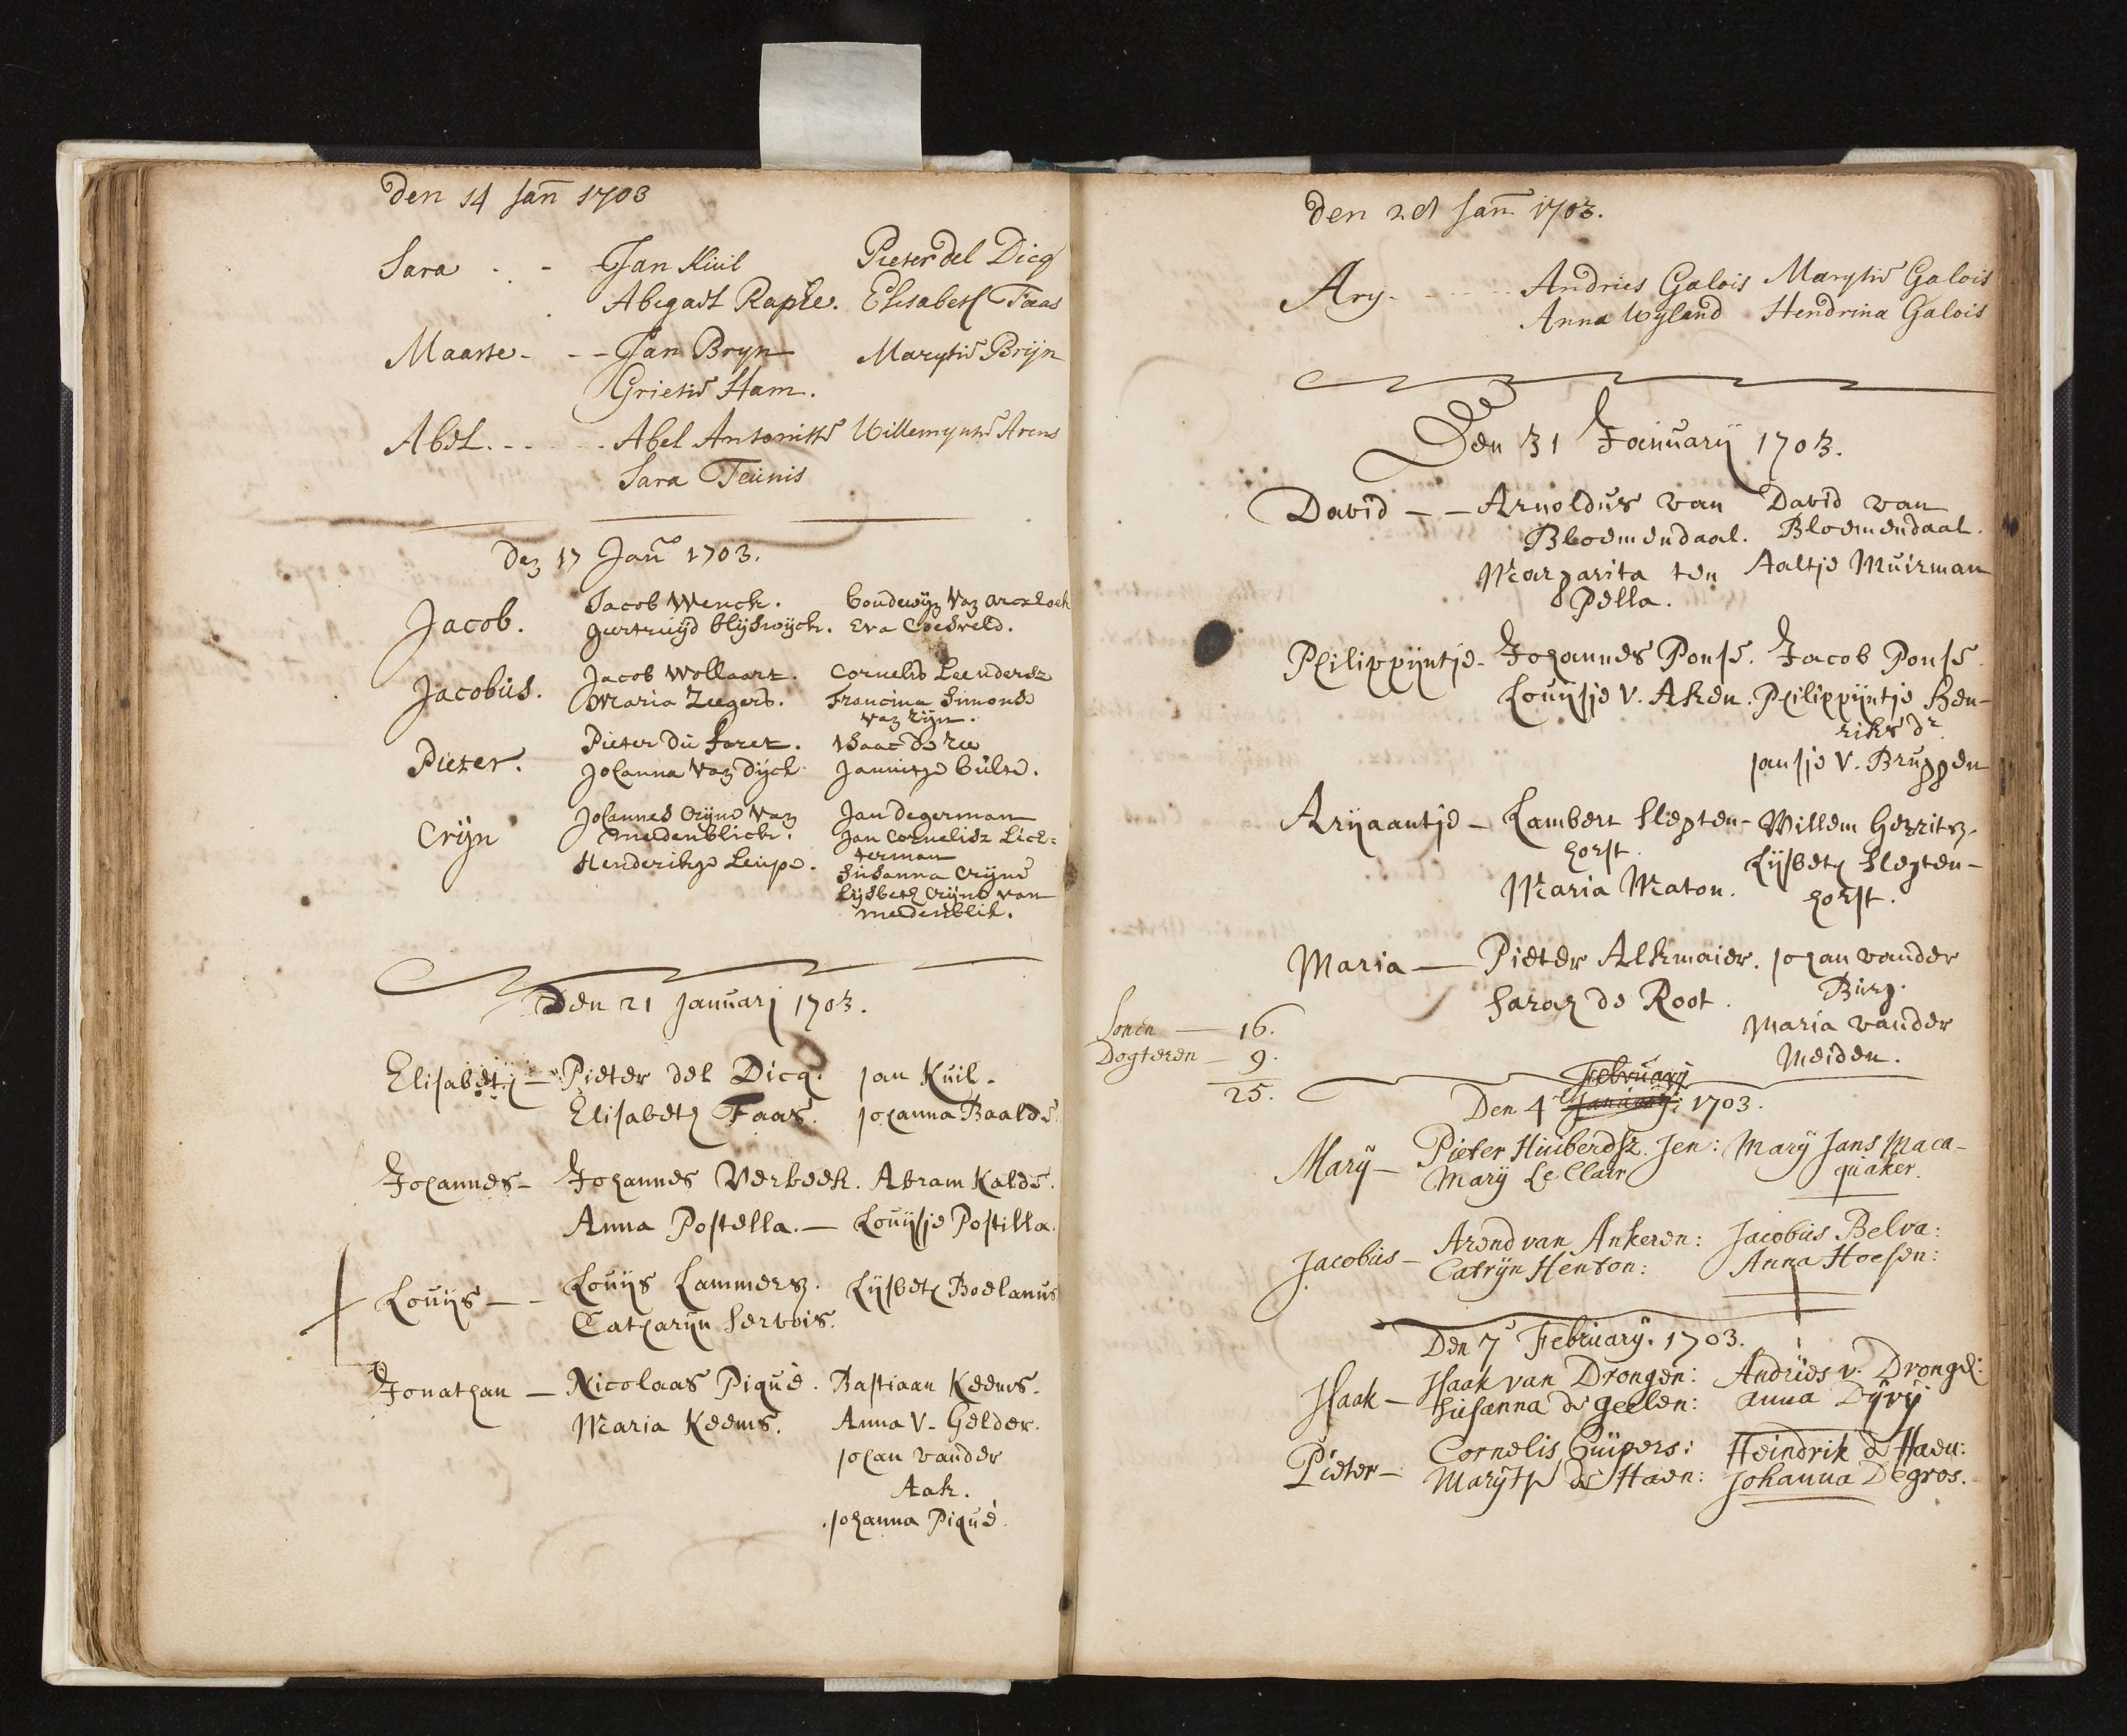 den 14 Jan 1703
Sara . - Jan Kuil Pieter del Dicq
Abigail Raple. Elisabeth Faas
Maarte - - - Jan Bryn Marytie Brijn
Grietie Ham.
Abel. - - - - Abel Antonisse Willemyntie Arens
Sara Teunis
Den 17 Jan 1703.
Jacob. Jacob Wenck. boudewijn van
geertruijd blijswijck. Eva Coesveld.
Jacobus. Jacob Wollaart. Cornelis Leendersz
Maria Zeegers. Francina Simonse
van rijn.
Pieter. Pieter du foret. Isaac de ree
Johanna van Dijck Jannitge bulte.
Crijn Johannes Crijne van Jan degerman
medenblick. Jan Cornelisz Lich=
Henderikge Leupe. terman
Susanna Crijne
Lijsbeth Crijns van
medenblik.
Den 21 Januarj 1703.
Elisabeth — Pieter del Dicq. Jan Kuil.
Elisabeth Faas. Johanna Baalde.
Johannes - Johannes Verbeek. Abram Kalde.
Anna Postella. — Louijsje Postilla.
Louijs - - Louijs Lammersz. Lijsbeth Boelanus
Catharijn Servois.
Jonathan — Nicolaas Piqué. Bastiaan Keems.
Maria Keems. Anna V. Gelder.
Johan vander
Aak.
Johanna Piqué.
den 28 Jan 1703.
Ary. - - - - Andries Galois Marytie Galois
Anna Wyland Hendrina Galois
Den 31 Januarij 1703.
David - - Arnoldus van David van
Bloemendaal. Bloemendaal.
Margarita ten Aaltje Muirman
Pella.
Philippijntje - Johannes Ponse. Jacob Ponse.
Louijsje V. Aken. Philippijntje Hen-
riks dr.
Jansje V. Bruggen
Arijaantje - Lambert Slegten- Willem Gerritz.
horst. Lijsbeth Slegten-
Maria Maton. horst.
Maria — Pieter Alkmaier. Johan vander
Sarah de Root. Burg.
Maria vander
Meiden.
Sonen — 16.
Dogteren — 9.
25.
Februarj
Den 4 Januarij: 1703.
Marij - Pieter Huiberdsz. Jen: Marij Jans Maca-
Marij Le Clair quaker.
Jacobus - Arend van Ankeren: Jacobus Belva:
Catrijn Henton: Anna Hoesen:
Den 7 Februarij. 1703.
Isaak - Isaak van Drongen: Andries v. Drongel:
Susanna de geelen: anna Dijvij
Pieter - Cornelis Cuipers: Heindrik de Haen:
Marijtje de Haen: Johanna Degros.